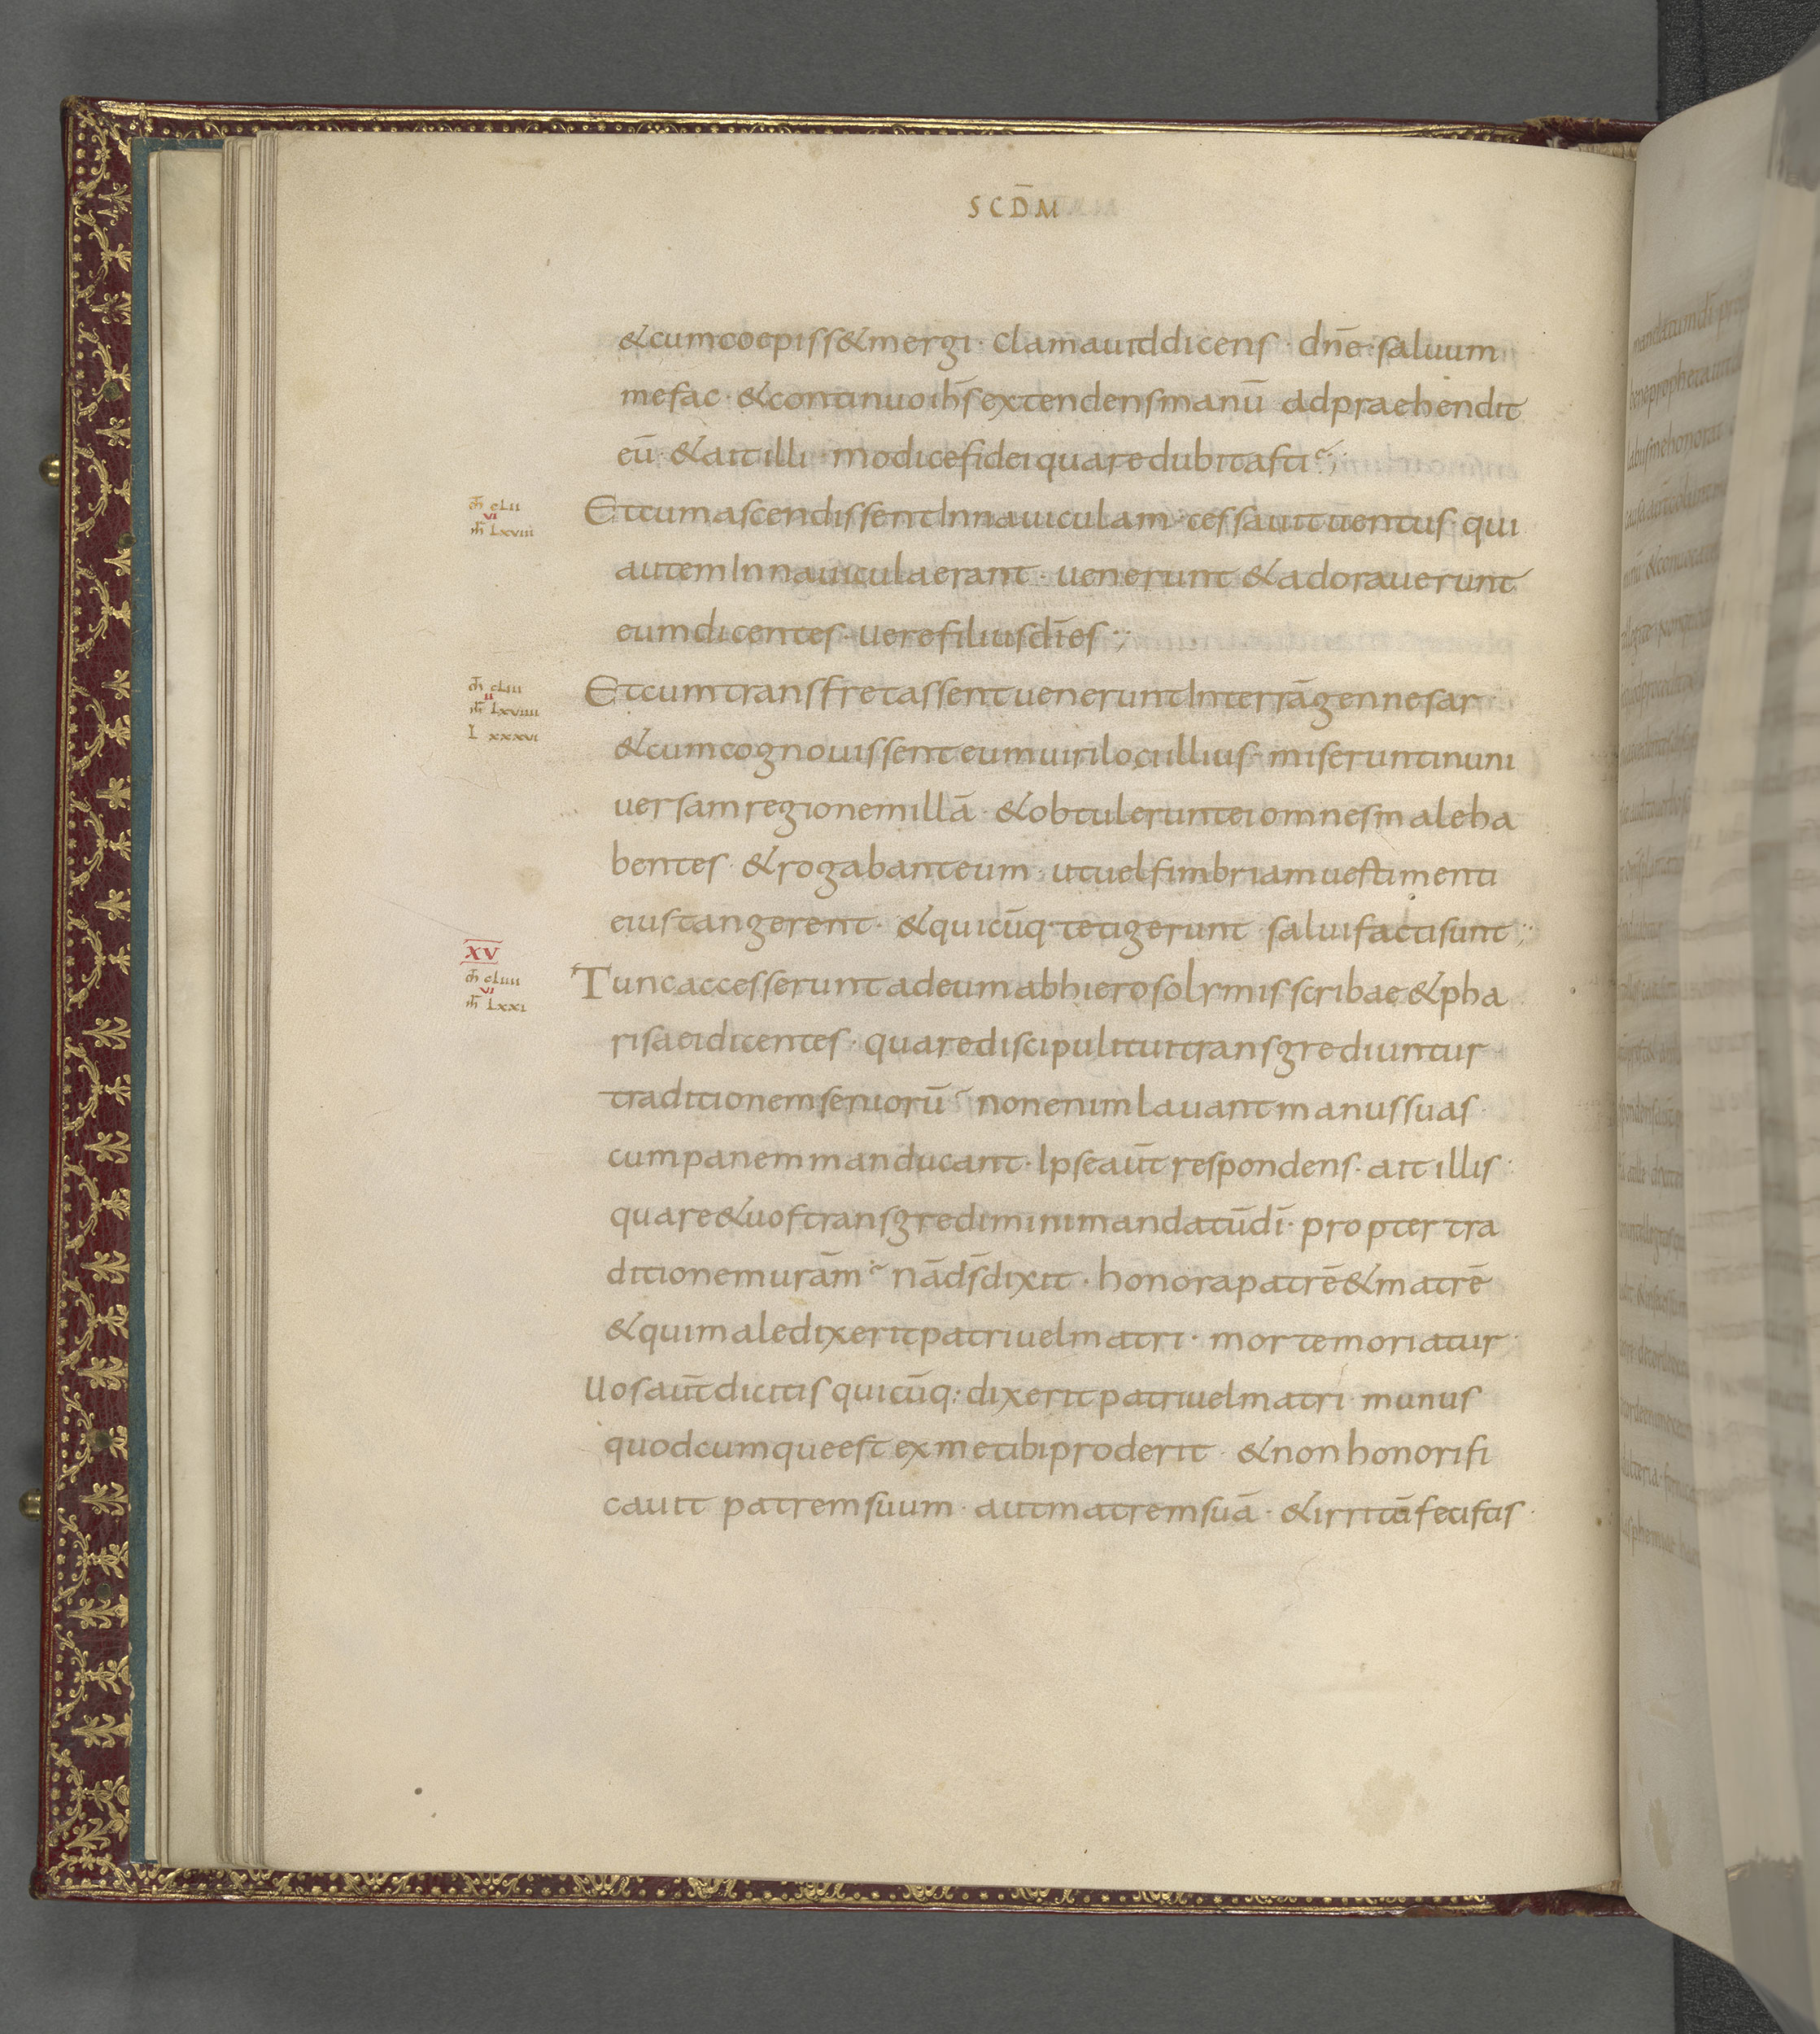 SCD̄M
&cumcoepiss&mergi · clamauitdicens · dn̄e · saluum
mefac · &continuoih̄sextendensmanū adpraehendit
eū · &aitilli · modicefideiquaredubitasti
Etcumascendissentinnauiculam · cessauituentus · qui
auteminnauiculaerant · uenerunt &adorauerunt
eumdicentes · uerefiliusdīes
Etcumtransfretassentueneruntinterrāgennesar
&cumcognouissenteumuirilociillius · miseruntinuni
uersamregionemillā · &obtulerunteiomnesmaleha
bentes · &rogabanteum · utuelfimbriamuestimenti
eiustangerent · &quicūq· tetigerunt · saluifactisunt
Tuncaccesseruntadeumabhierosolymisscribae&pha
risaeidicentes · quarediscipulituitransgrediuntur
traditionemseniorū nonenimlauantmanussuas
cumpanemmanducant · Ipseaūtrespondens · aitillis ·
quare&uostransgrediminimandatūdī · proptertra
ditionemurām nādsd̄ixit · honorapatrē&matrē
&quimaledixeritpatriuelmatri · mortemoriatur
Uosaūtdicitisquicūq: dixeritpatriuelmatri · munus
quodcumqueestexmetibiproderit · &nonhonorifi
cauit patremsuum · autmatremsuā · &irritūfecistis
m̄ clii
vi
m̄r lxviii
m̄ cliii
ii
m̄r lxviiii
L xxxvi
XV
m̄ cliiii
vi
m̄r lxxi